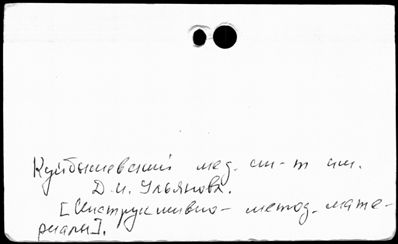 Куйбышевский мед. ин-т им.
Д.И. Ульянова.
[Инструктивно-метод. мате-
риалы].